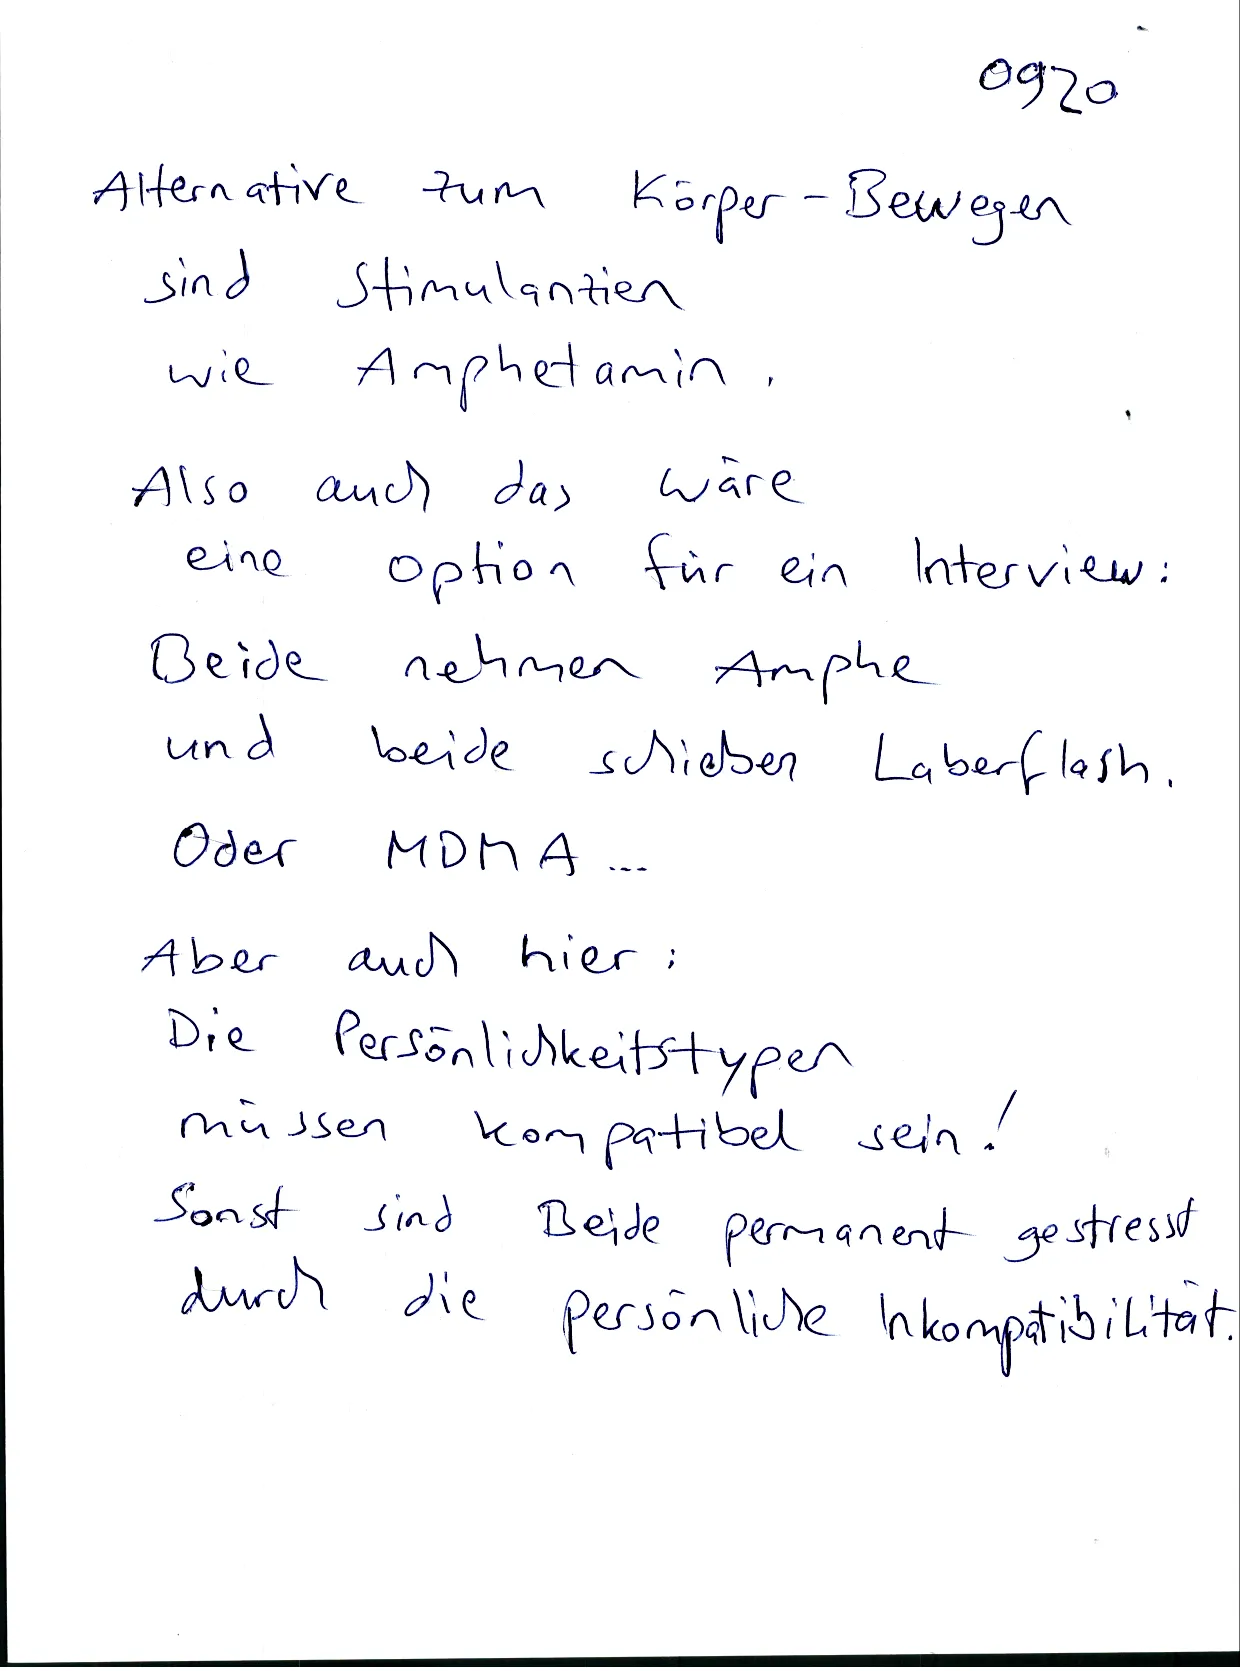 0920
Alternative zum Körper-Bewegen
sind Stimulantien
wie Amphetamin.
Also auch das wäre
eine Option für ein Interview:
Beide nehmen Amphe
und beide schieben Laberflash.
Oder MDMA...
Aber auch hier:
Die Persönlichkeitstypen
müssen kompatibel sein!
Sonst sind Beide permanent gestresst
durch die persönliche Inkompatibilität.